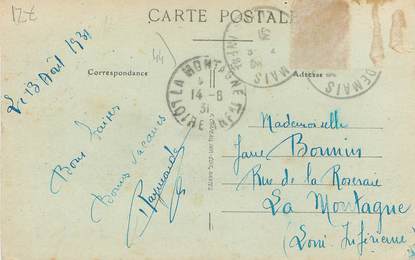 12€
44
CARTE POSTALE
Correspondance
Adresse
LA MONTAGNE
14-8
31
LOIRE INFRE
DEMAIS
DEMAIS
Le 13 Août 1931
Bons baisers
Bonnes vacances
Raymonde
Mademoiselle
Jane
Rue de la Roseraie
La Montagne
(Loire Inférieure)